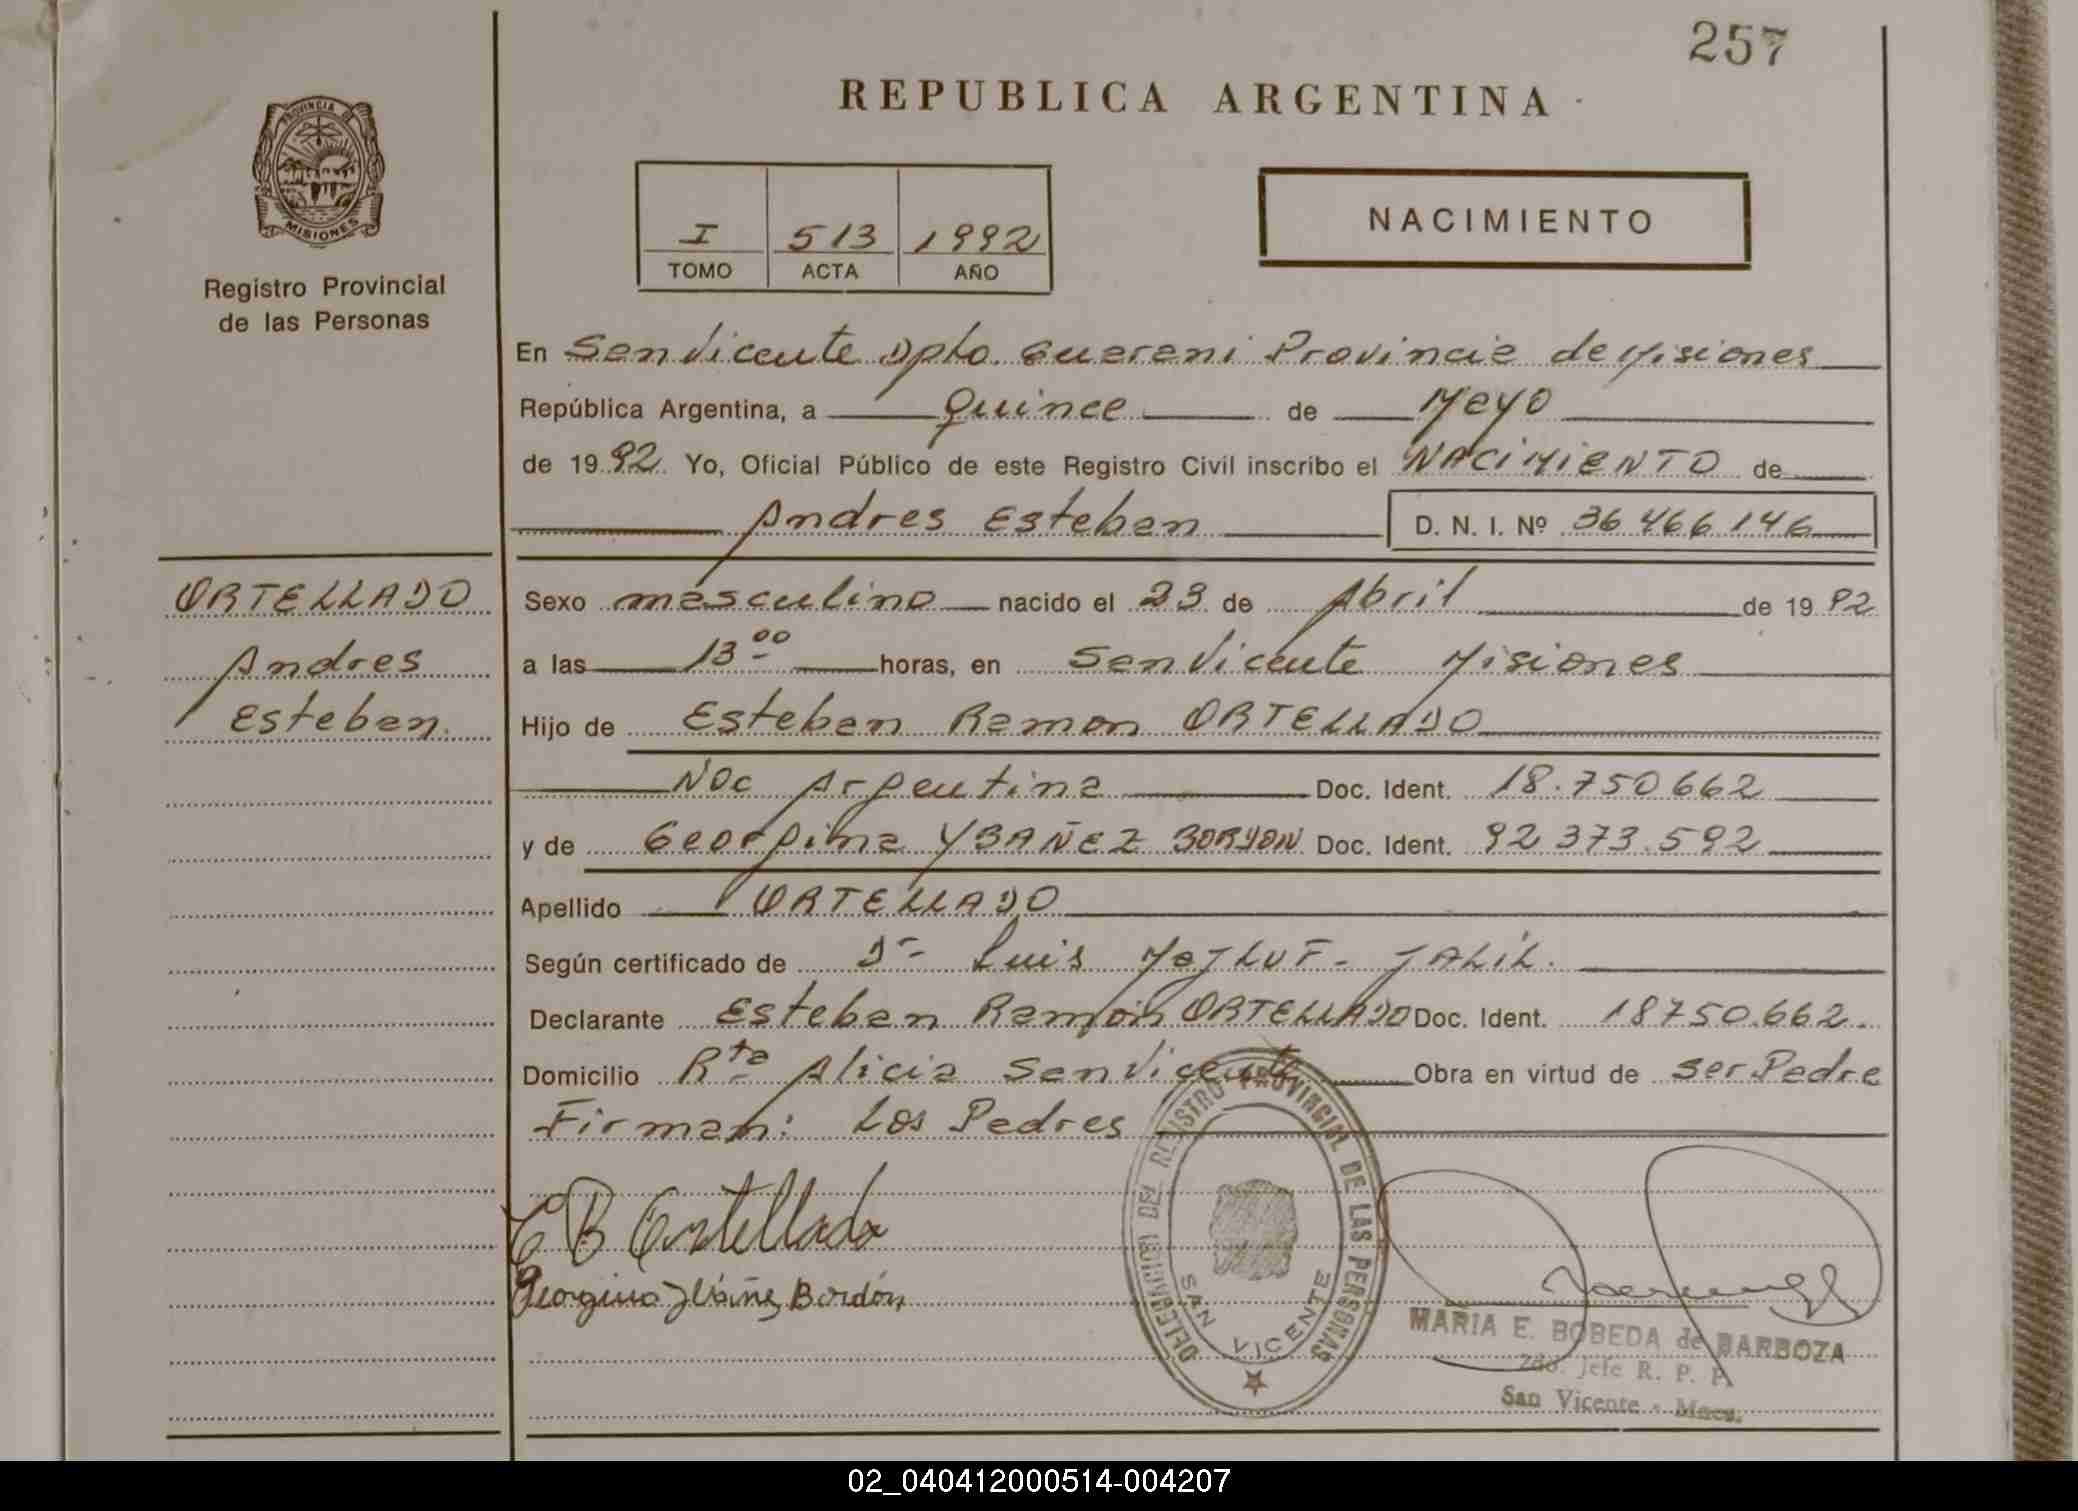 257
REPUBLICA ARGENTINA
PROVINCIA DE
MISIONES
Registro Provincial
de las Personas
I 513 1992
TOMO ACTA AÑO
NACIMIENTO
En San Vicente Dpto. Guarani Provincia de Misiones
República Argentina, a Quince de Mayo
de 1992 Yo, Oficial Público de este Registro Civil inscribo el NACIMIENTO de
Andres Esteban D. N. I. Nº 36.466.146
ORTELLADO
Andres
Esteban.
Sexo masculino nacido el 23 de Abril de 1992
a las 13 00 horas, en San Vicente Misiones
Hijo de Esteban Ramon ORTELLADO
Nac Argentina Doc. Ident. 18.750662
y de Georgina YBAÑEZ BORDON Doc. Ident. 92 373.592
Apellido ORTELLADO
Según certificado de Dr Luis MAJLUF - JALIL.
Declarante Esteban Ramón ORTELLADO Doc. Ident. 18750.662.
Domicilio Rta Alicia San Vicente Obra en virtud de ser Padre
Firman: Los Padres
Ortellado
Georgina Ibáñez Bordón
DELEGACION DEL REGISTRO PROVINCIAL DE LAS PERSONAS
SAN VICENTE
MARIA E. BOBEDA de BARBOZA
2do. Jefe R. P. P.
San Vicente - Mnes.
02_040412000514-004207